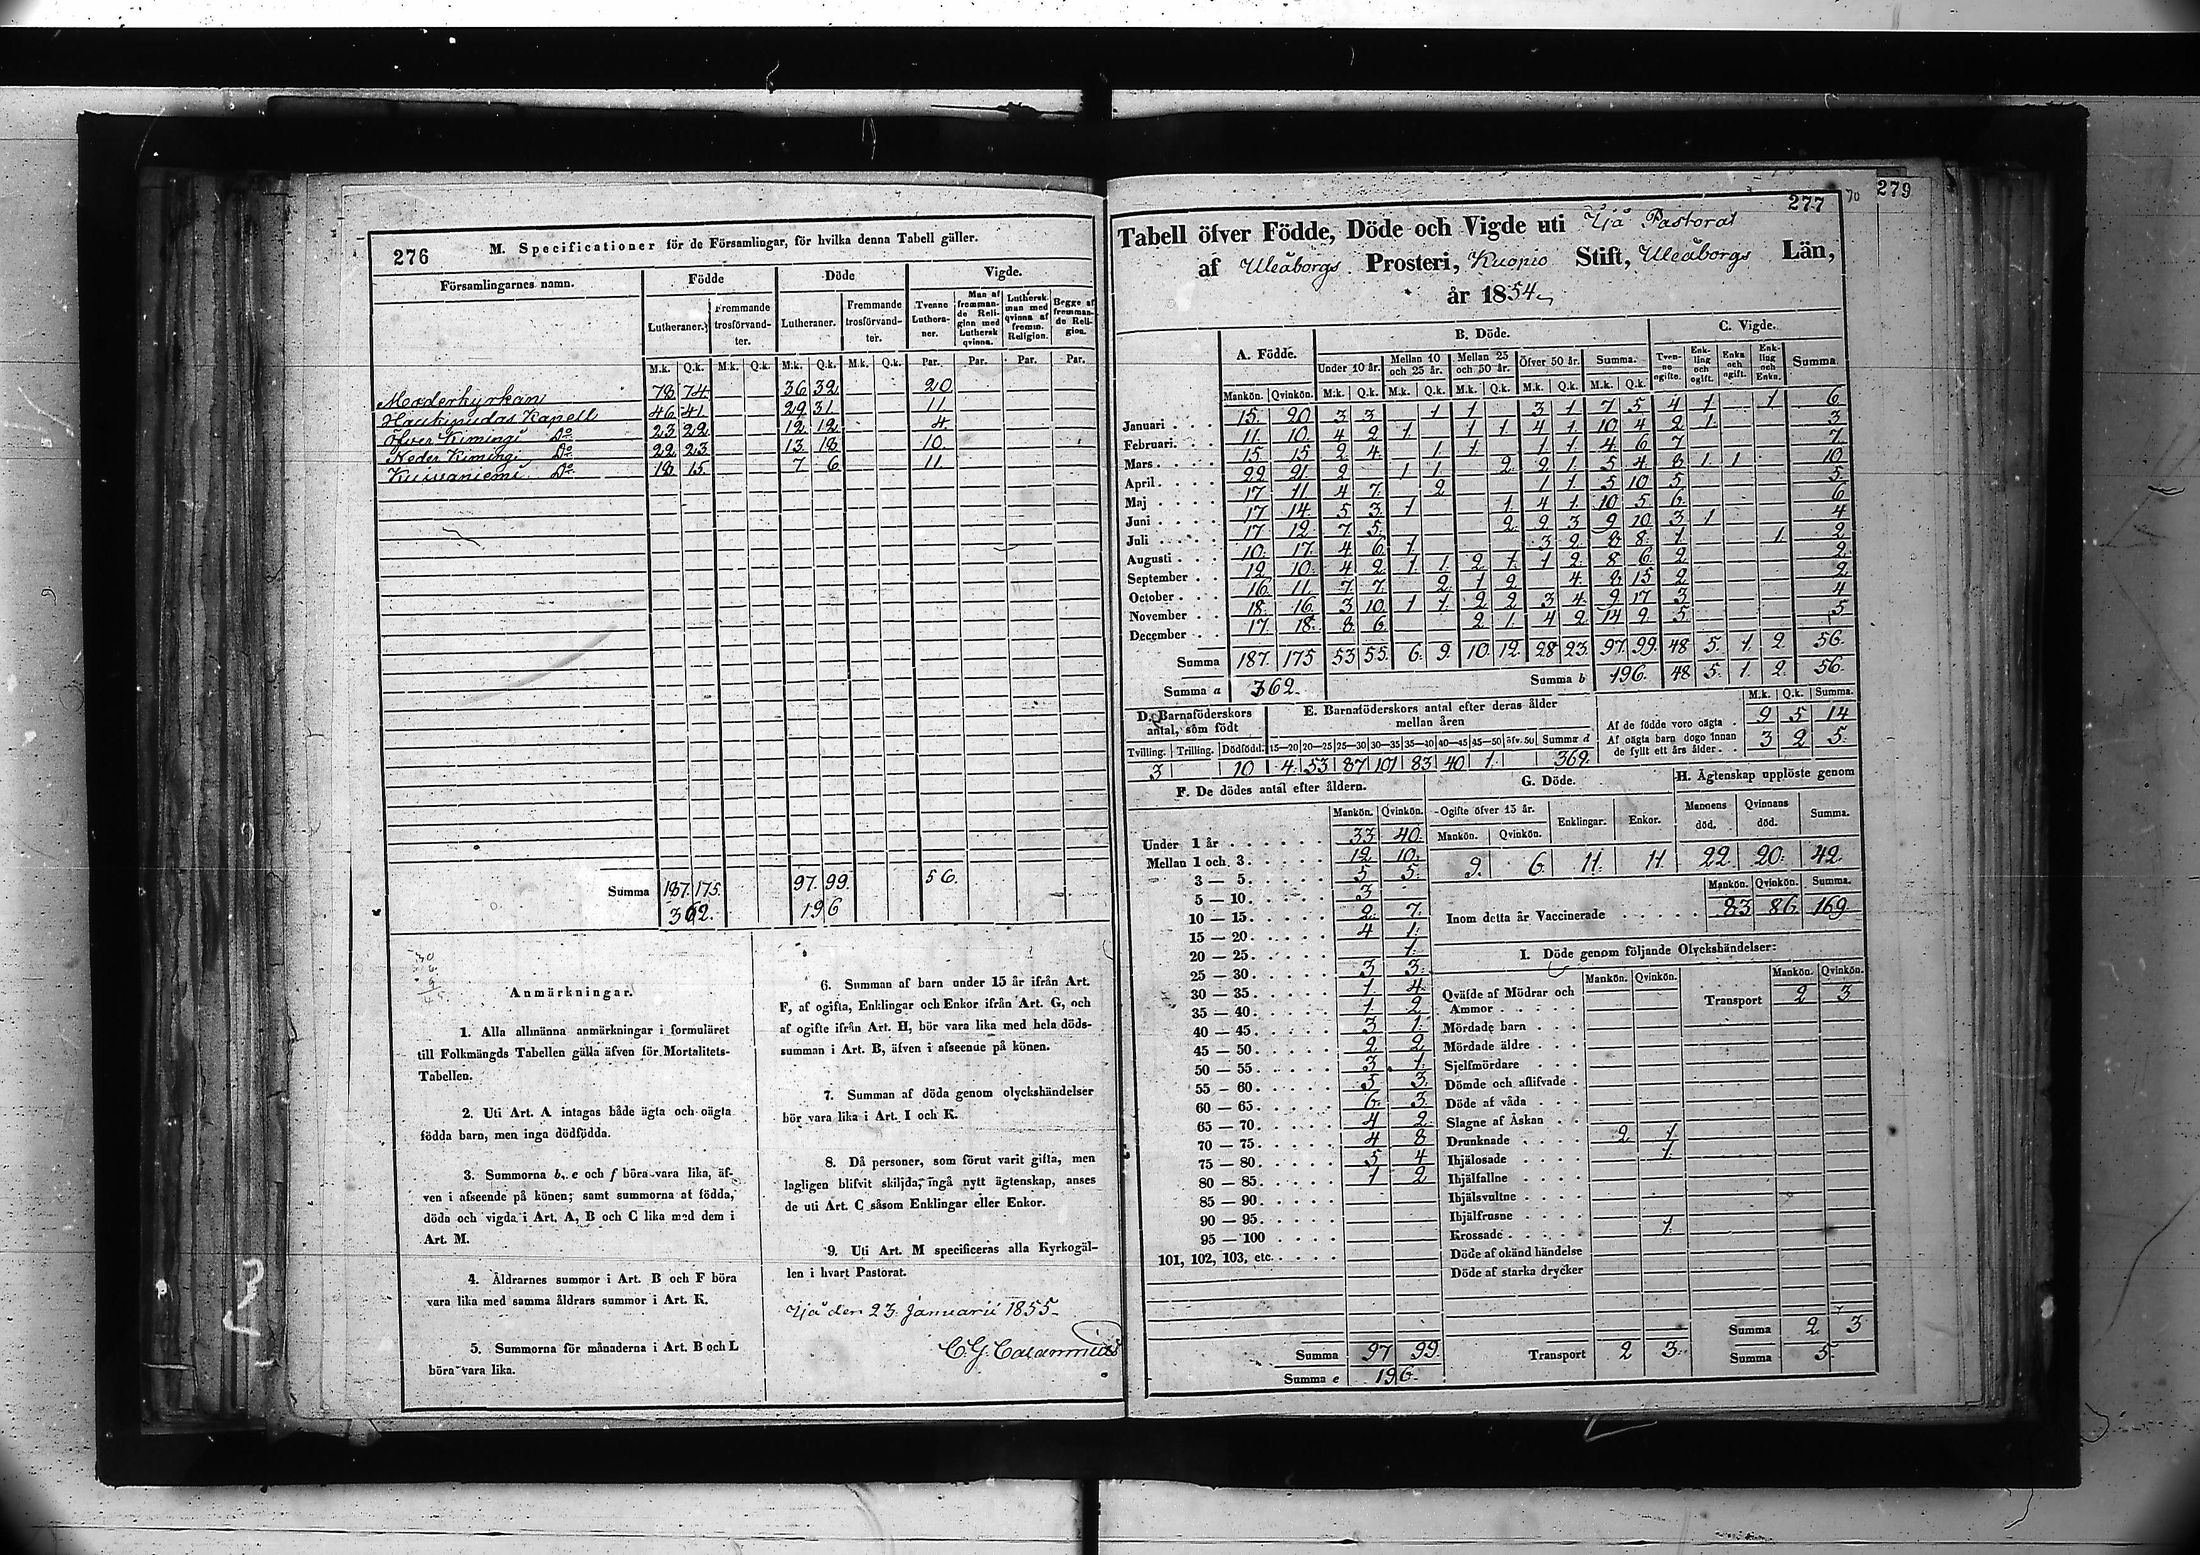 276 M. Specificationer för de Församlingar, för hvilka denna Tabell gäller.
Församlingarnes namn. Födde Döde Vigde.
Lutheraner. Fremmande trosförvandter. Lutheraner. Fremmande trosförvandter. Tvenne Lutheraner. Man af fremmande Religion med Luthersk qvinna. Luthersk man med qvinna af fremm. Religion. Begge af fremmande Religion.
M.k. Q.k. M.k. Q.k. M.k. Q.k. M.k. Q.k. Par. Par. Par. Par.
Moderkyrkan 78 74 36 32 20
Haukipudas Kapell 46 41 29 31 11
Öfver Kimingi Do 23 22 12 12 4
Neder Kimingi Do 22 23 13 18 10
Kuivaniemi Do 18 15 7 6 11
Summa 187. 175. 97. 99. 56.
362. 196
Anmärkningar.
1. Alla allmänna anmärkningar i formuläret
till Folkmängds Tabellen gälla äfven för Mortalitets-
Tabellen.
2. Uti Art. A intagas både ägta och oägta
födda barn, men inga dödfödda.
3. Summorna b, e och f böra vara lika, äf-
ven i afseende på könen; samt summorna af födda,
döda och vigda i Art. A, B och C lika med dem i
Art. M.
4. Åldrarnes summor i Art. B och F böra
vara lika med samma åldrars summor i Art. K.
5. Summorna för månaderna i Art. B och L
böra vara lika.
6. Summan af barn under 15 år ifrån Art.
F, af ogifta, Enklingar och Enkor ifrån Art. G, och
af ogifte ifrån Art. H, bör vara lika med hela döds-
summan i Art. B, äfven i afseende på könen.
7. Summan af döda genom olyckshändelser
bör vara lika i Art. I och K.
8. Då personer, som förut varit gifta, men
lagligen blifvit skiljda, ingå nytt ägtenskap, anses
de uti Art. C såsom Enklingar eller Enkor.
9. Uti Art. M specificeras alla Kyrkogäl-
len i hvart Pastorat.
Ijå den 23. Januarii 1855.
277 70 279
Tabell öfver Födde, Döde och Vigde uti Ijå Pastorat
af Uleåborgs Prosteri, Kuopio Stift, Uleåborgs Län,
år 1854
A. Födde. B. Döde. C. Vigde.
Under 10 år. Mellan 10 och 25 år. Mellan 25 och 50 år. Öfver 50 år. Summa. Tvenne ogifte. Enkling och ogift. Enka och ogift. Enkling och Enka. Summa.
Mankön. Qvinkön. M.k. Q.k. M.k. Q.k. M.k. Q.k. M.k. Q.k. M.k. Q.k.
Januari 15. 20 3 3 1 1 3 1 7 5 4 1 1 6
Februari. 11. 10. 4 2 1 1 1 4 1 10 4 2 1 3
Mars 15 15 2 4 1 1 1 1 4 6 7 7
April 22 21 2 1 1 2 2 1 5 4 8 1 1 10
Maj 17 11 4 7 2 1 1 5 10 5 5
Juni 17 14. 5 3 1 1 4 1 10 5 6 6
Juli 17 12 7 5 2 2 3 9 10 3 1 4
Augusti 10. 17. 4 6 1 3 2 8 8 1 1 2
September 12 10. 4 2 1 1 2 1 1 2 8 6 2 2
October 16 11. 7 7 2 1 2 4 8 15 2 2
November 18. 16. 3 10 1 1 2 2 3 4 9 17 3 4
December 17. 18. 8 6 2 1 4 2 14 9 5 5
Summa 187. 175 53 55. 6. 9. 10. 12. 28 23. 97. 99. 48 5. 1. 2. 56.
Summa a 362. Summa b 196. 48 5. 1. 2. 56.
D. Barnaföderskors antal, som födt
E. Barnaföderskors antal efter deras ålder mellan åren
M.k. Q.k. Summa.
Af de födde voro oägta 9 5 14
Af oägta barn dogo innan de fyllt ett års ålder 3 2 5.
Tvilling. Trilling. Dödfödd. 15—20 20—25 25—30 30—35 35—40 40—45 45—50 öfv. 50 Summa d
3 10 4 53 87 101 83 40 1. 369.
F. De dödes antal efter åldern.
Mankön. Qvinkön.
Under 1 år 33 40.
Mellan 1 och 3 12 10.
3 — 5 5 5.
5 — 10 3
10 — 15 2. 7.
15 — 20 4 1.
20 — 25 1.
25 — 30 3 3.
30 — 35 1. 4.
35 — 40 1. 2
40 — 45 3 1.
45 — 50 2 2
50 — 55 3 1.
55 — 60 5 3.
60 — 65 6. 3.
65 — 70 4 2
70 — 75 4 8
75 — 80 5 4
80 — 85 1 2
85 — 90
90 — 95
95 — 100
101, 102, 103, etc.
Summa 97 99.
Summa e 196.
G. Döde.
Ogifte öfver 15 år. Enklingar. Enkor.
Mankön. Qvinkön.
9. 6. 11. 11
H. Ägtenskap upplöste genom
Mannens död. Qvinnans död. Summa.
22. 20. 42.
Mankön. Qvinkön. Summa.
Inom detta år Vaccinerade 83 86 169
I. Döde genom följande Olyckshändelser:
Mankön. Qvinkön. Mankön. Qvinkön.
Qväfde af Mödrar och Ammor
Transport 2 3
Mördade barn
Mördade äldre
Sjelfmördare
Dömde och aflifvade
Döde af våda
Slagne af Åskan
Drunknade 2 1
Ihjälosade 1.
Ihjälfallne
Ihjälsvultne
Ihjälfrusne
Krossade 1.
Döde af okänd händelse
Döde af starka drycker
Summa 2 3
Transport 2 3. Summa 5.